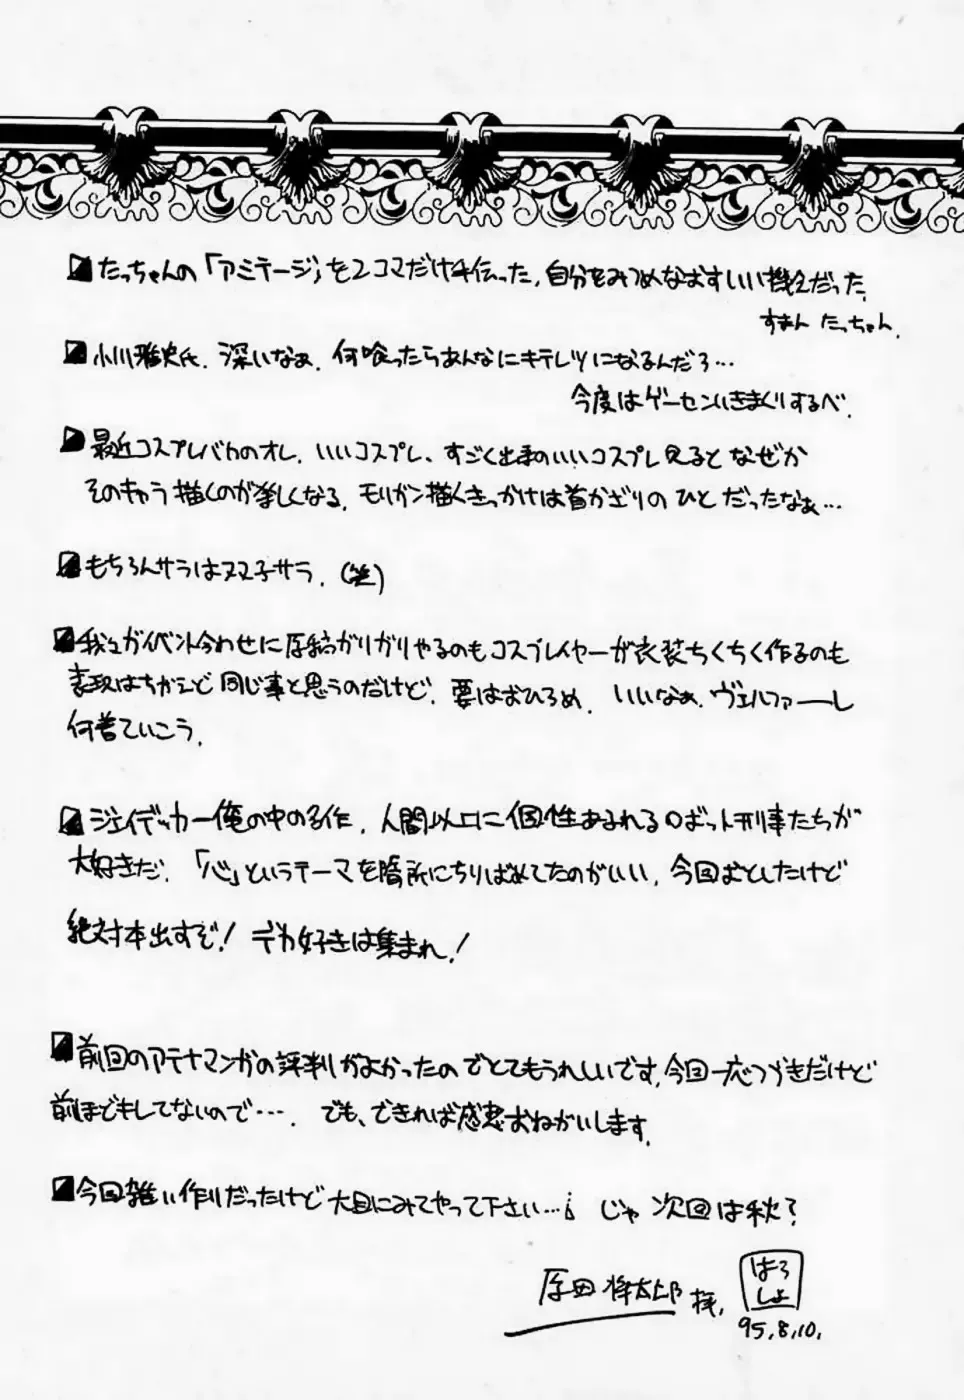 たっちゃんの「アミテージ」を2コマだけ手伝った.自分をみつめなおすいい機会だった.
すまん たっちゃん.
小川雅史氏.深いなぁ.何喰ったらあんなにキテレツになるんだろ…
今度はゲーセンいきまくりするべ.
最近コスプレバカのオレ.いいコスプレ、すごく出来のいいコスプレ見ると なぜか
そのキャラ描くのが楽しくなる.モリガン描くきっかけは首かざりの ひと だったなぁ…
もちろんサラはヌマ子サラ.(笑)
我々がイベント合わせに原稿がりがりやるのもコスプレイヤーが衣装ちくちく作るのも
表現はちがえど 同じ事と思うのだけど.要はおひろめ.いいなぁ.ヴェルファーレ
何着ていこう.
ジェイデッカー俺の中の名作.人間以上に個性あふれるロボット刑事たちが
大好きだ.「心」というテーマを随所にちりばめてたのがいい.今回おとしたけど
絶対本出すぞ!デカ好きは集まれ!
前回のアテナマンガの評判がよかったのでとてもうれしいです.今回一応つづきだけど
前ほどキしてないので….でも、できれば感想おねがいします.
今回雑い作りだったけど大目にみてやって下さい…。じゃ 次回は秋?
原田将太郎 拝.
はろしょ
95.8.10.